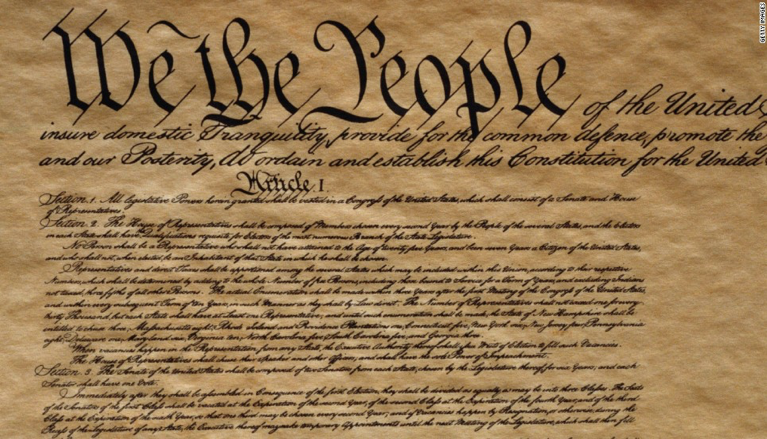 GETTY IMAGES
We the People of the United
insure domestic Tranquility, provide for the common defence, promote the
and our Posterity, do ordain and establish this Constitution for the United
Article I.
Section. 1. All legislative Powers herein granted shall be vested in a Congress of the United States, which shall consist of a Senate and House
of Representatives.
Section. 2. The House of Representatives shall be composed of Members chosen every second Year by the People of the several States, and the Electors
in each State shall have Qualifications requisite for Electors of the most numerous Branch of the State Legislature.
No Person shall be a Representative who shall not have attained to the Age of twenty five Years, and been seven Years a Citizen of the United States,
and who shall not, when elected, be an Inhabitant of that State in which he shall be chosen.
Representatives and direct Taxes shall be apportioned among the several States which may be included within this Union, according to their respective
Numbers, which shall be determined by adding to the whole Number of free Persons, including those bound to Service for a Term of Years, and excluding Indians
not taxed, three fifths of all other Persons. The actual Enumeration shall be made within three Years after the first Meeting of the Congress of the United States,
and within every subsequent Term of ten Years, in such Manner as they shall by Law direct. The Number of Representatives shall not exceed one for every
thirty Thousand, but each State shall have at Least one Representative; and until such enumeration shall be made, the State of New Hampshire shall be
entitled to chuse three, Massachusetts eight, Rhode Island and Providence Plantations one, Connecticut five, New York six, New Jersey four, Pennsylvania
eight, Delaware one, Maryland six, Virginia ten, North Carolina five, South Carolina five, and Georgia three.
When vacancies happen in the Representation from any State, the Executive Authority thereof shall issue Writs of Election to fill such Vacancies.
The House of Representatives shall chuse their Speaker and other Officers; and shall have the sole Power of Impeachment.
Section. 3. The Senate of the United States shall be composed of two Senators from each State, chosen by the Legislature thereof, for six Years; and each
Senator shall have one Vote.
Immediately after they shall be assembled in Consequence of the first Election, they shall be divided as equally as may be into three Classes. The Seats
of the Senators of the first Class shall be vacated at the Expiration of the second Year, of the second Class at the Expiration of the fourth Year, and of the third
Class at the Expiration of the sixth Year, so that one third may be chosen every second Year; and if Vacancies happen by Resignation, or otherwise, during the
Recess of the Legislature of any State, the Executive thereof may make temporary Appointments until the next Meeting of the Legislature, which shall then fill